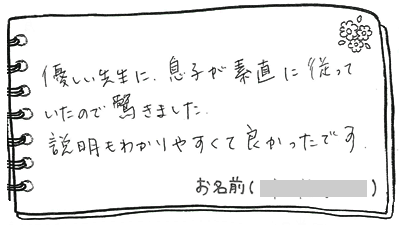 優しい先生に、息子が素直に従って
いたので驚きました.
説明もわかりやすくて良かったです.
お名前( )